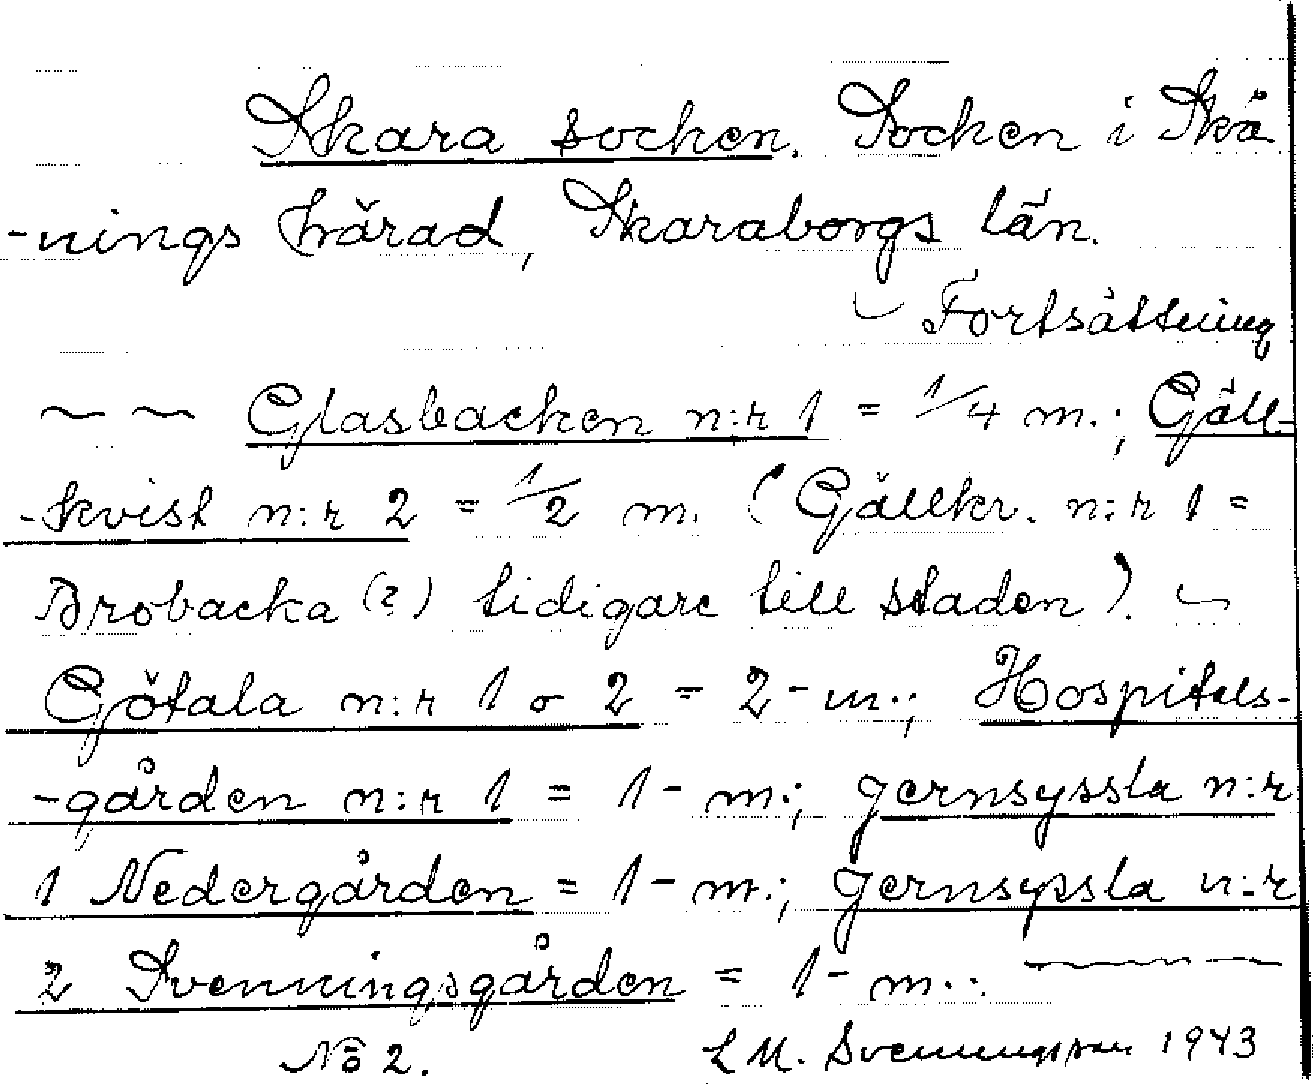 Skara socken. Socken i Skä
-nings härad, Skaraborgs län.
Fortsättning
~ ~ Glasbacken n:r 1 = 1/4 m.; Gäll-
-kvist n:r 2 = 1/2 m. (Gällkv. n:r 1 =
Brobacka (?) tidigare till staden). ~
Götala n:r 1 o 2 = 2 - m.; Hospitals-
-gården n:r 1 = 1 - m.; Jernsyssla n:r
1 Nedergården = 1 - m.; Jernsyssla n:r
2 Svenningsgården = 1 - m..
No 2. L M. Svenningsson 1943